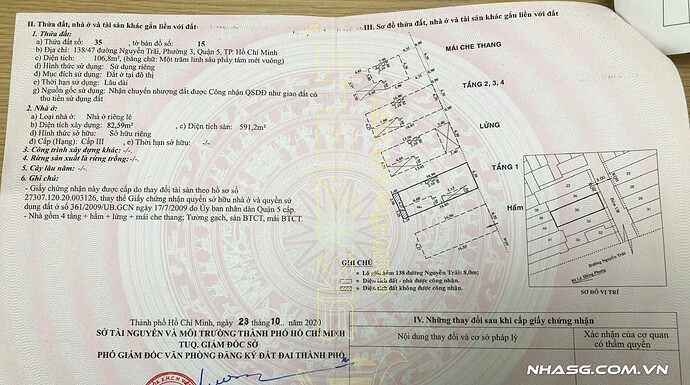 II. Thửa đất, nhà ở và tài sản khác gắn liền với đất
1. Thửa đất:
a) Thửa đất số: 35 , tờ bản đồ số: 15
b) Địa chỉ: 138/47 đường Nguyễn Trãi, Phường 3, Quận 5, TP. Hồ Chí Minh
c) Diện tích: 106,8m², (bằng chữ: Một trăm linh sáu phẩy tám mét vuông)
d) Hình thức sử dụng: Sử dụng riêng
đ) Mục đích sử dụng: Đất ở tại đô thị
e) Thời hạn sử dụng: Lâu dài
g) Nguồn gốc sử dụng: Nhận chuyển nhượng đất được Công nhận QSDĐ như giao đất có
thu tiền sử dụng đất
2. Nhà ở:
a) Loại nhà ở: Nhà ở riêng lẻ
b) Diện tích xây dựng: 82,59m², c) Diện tích sàn: 591,2m²
d) Hình thức sở hữu: Sở hữu riêng
đ) Cấp (Hạng): Cấp III , e) Thời hạn sở hữu: -/-
3. Công trình xây dựng khác: -/-
4. Rừng sản xuất là rừng trồng: -/-
5. Cây lâu năm: -/-
6. Ghi chú:
- Giấy chứng nhận này được cấp do thay đổi tài sản theo hồ sơ số
27307.120.20.003126, thay thế Giấy chứng nhận quyền sở hữu nhà ở và quyền sử
dụng đất ở số 361/2009/UB.GCN ngày 17/7/2009 do Ủy ban nhân dân Quận 5 cấp.
- Nhà gồm 4 tầng + hầm + lửng + mái che thang; Tường gạch, sàn BTCT, mái BTCT.
Thành phố Hồ Chí Minh, ngày 23 tháng 10 năm 2020
SỞ TÀI NGUYÊN VÀ MÔI TRƯỜNG THÀNH PHỐ HỒ CHÍ MINH
TUQ. GIÁM ĐỐC SỞ
PHÓ GIÁM ĐỐC VĂN PHÒNG ĐĂNG KÝ ĐẤT ĐAI THÀNH PHỐ
III. Sơ đồ thửa đất, nhà ở và tài sản khác gắn liền với đất
MÁI CHE THANG
TẦNG 2, 3, 4
LỬNG
TẦNG 1
HẦM
Đường Nguyễn Trãi
Đi Lê Hồng Phong
SƠ ĐỒ VỊ TRÍ
GHI CHÚ
Lộ giới hẻm 138 đường Nguyễn Trãi: 8,0m;
Diện tích đất - nhà được công nhận.
Diện tích đất không được công nhận.
IV. Những thay đổi sau khi cấp giấy chứng nhận
Nội dung thay đổi và cơ sở pháp lý
Xác nhận của cơ quan
có thẩm quyền
NHASG.COM.VN